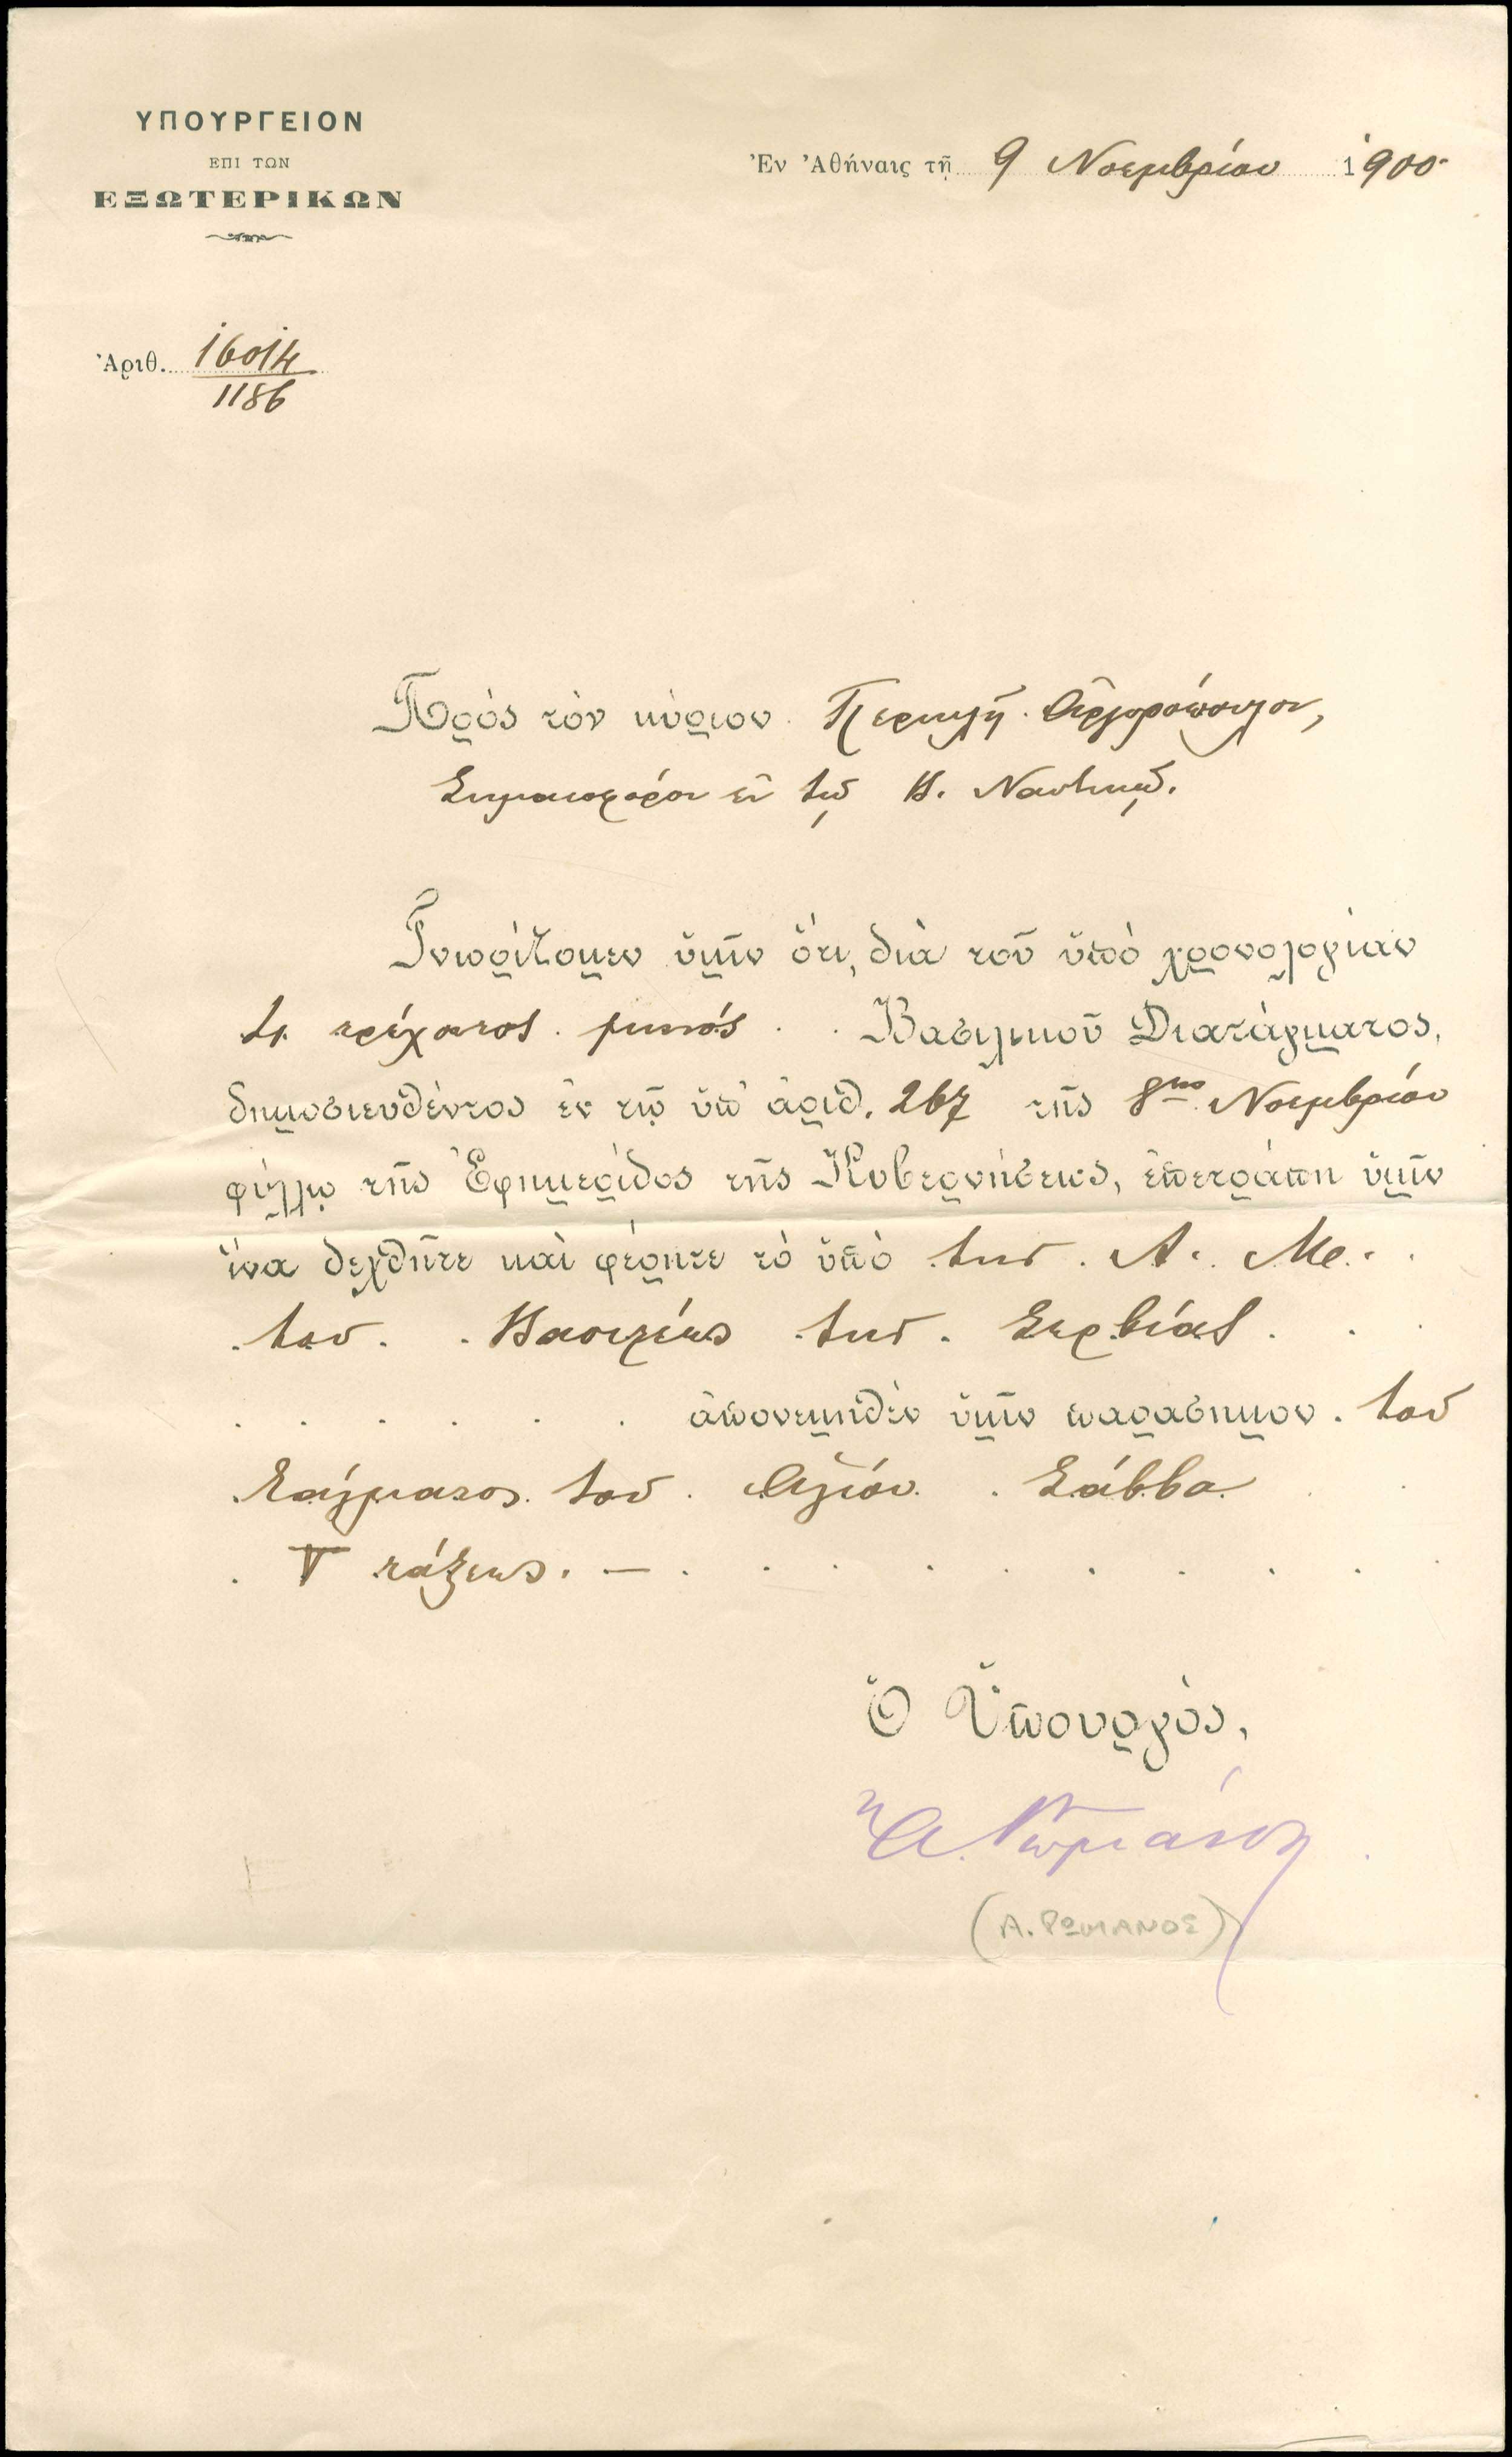 ΥΠΟΥΡΓΕΙΟΝ
ΕΠΙ ΤΩΝ
ΕΞΩΤΕΡΙΚΩΝ
Ἐν Ἀθήναις τῇ 9 Νοεμβρίου 1900
Ἀριθ. 16014
1186
Πρὸς τὸν κύριον Περικλῆ Ἀργυρόπουλον,
Σημαιοφόρον ἐν τῷ Β. Ναυτικῷ.
Γνωρίζομεν ὑμῖν ὅτι, διὰ τοῦ ὑπὸ χρονολογίαν
τρέχοντος μηνός Βασιλικοῦ Διατάγματος,
δημοσιευθέντος ἐν τῷ ὑπ' ἀριθ. 267 τῆς 8ης Νοεμβρίου
φύλλῳ τῆς Ἐφημερίδος τῆς Κυβερνήσεως, ἐπετράπη ὑμῖν
ἵνα δεχθῆτε καὶ φέρητε τὸ ὑπὸ τῆς Α. Με.
τοῦ Βασιλέως τῆς Σερβίας
ἀπονεμηθὲν ὑμῖν παράσημον τοῦ
Τάγματος τοῦ Ἁγίου Σάββα
τάξεως. —
Ὁ Ὑπουργὸς,
Ἀ. Ῥωμάνος
(Α. ΡΩΜΑΝΟΣ)